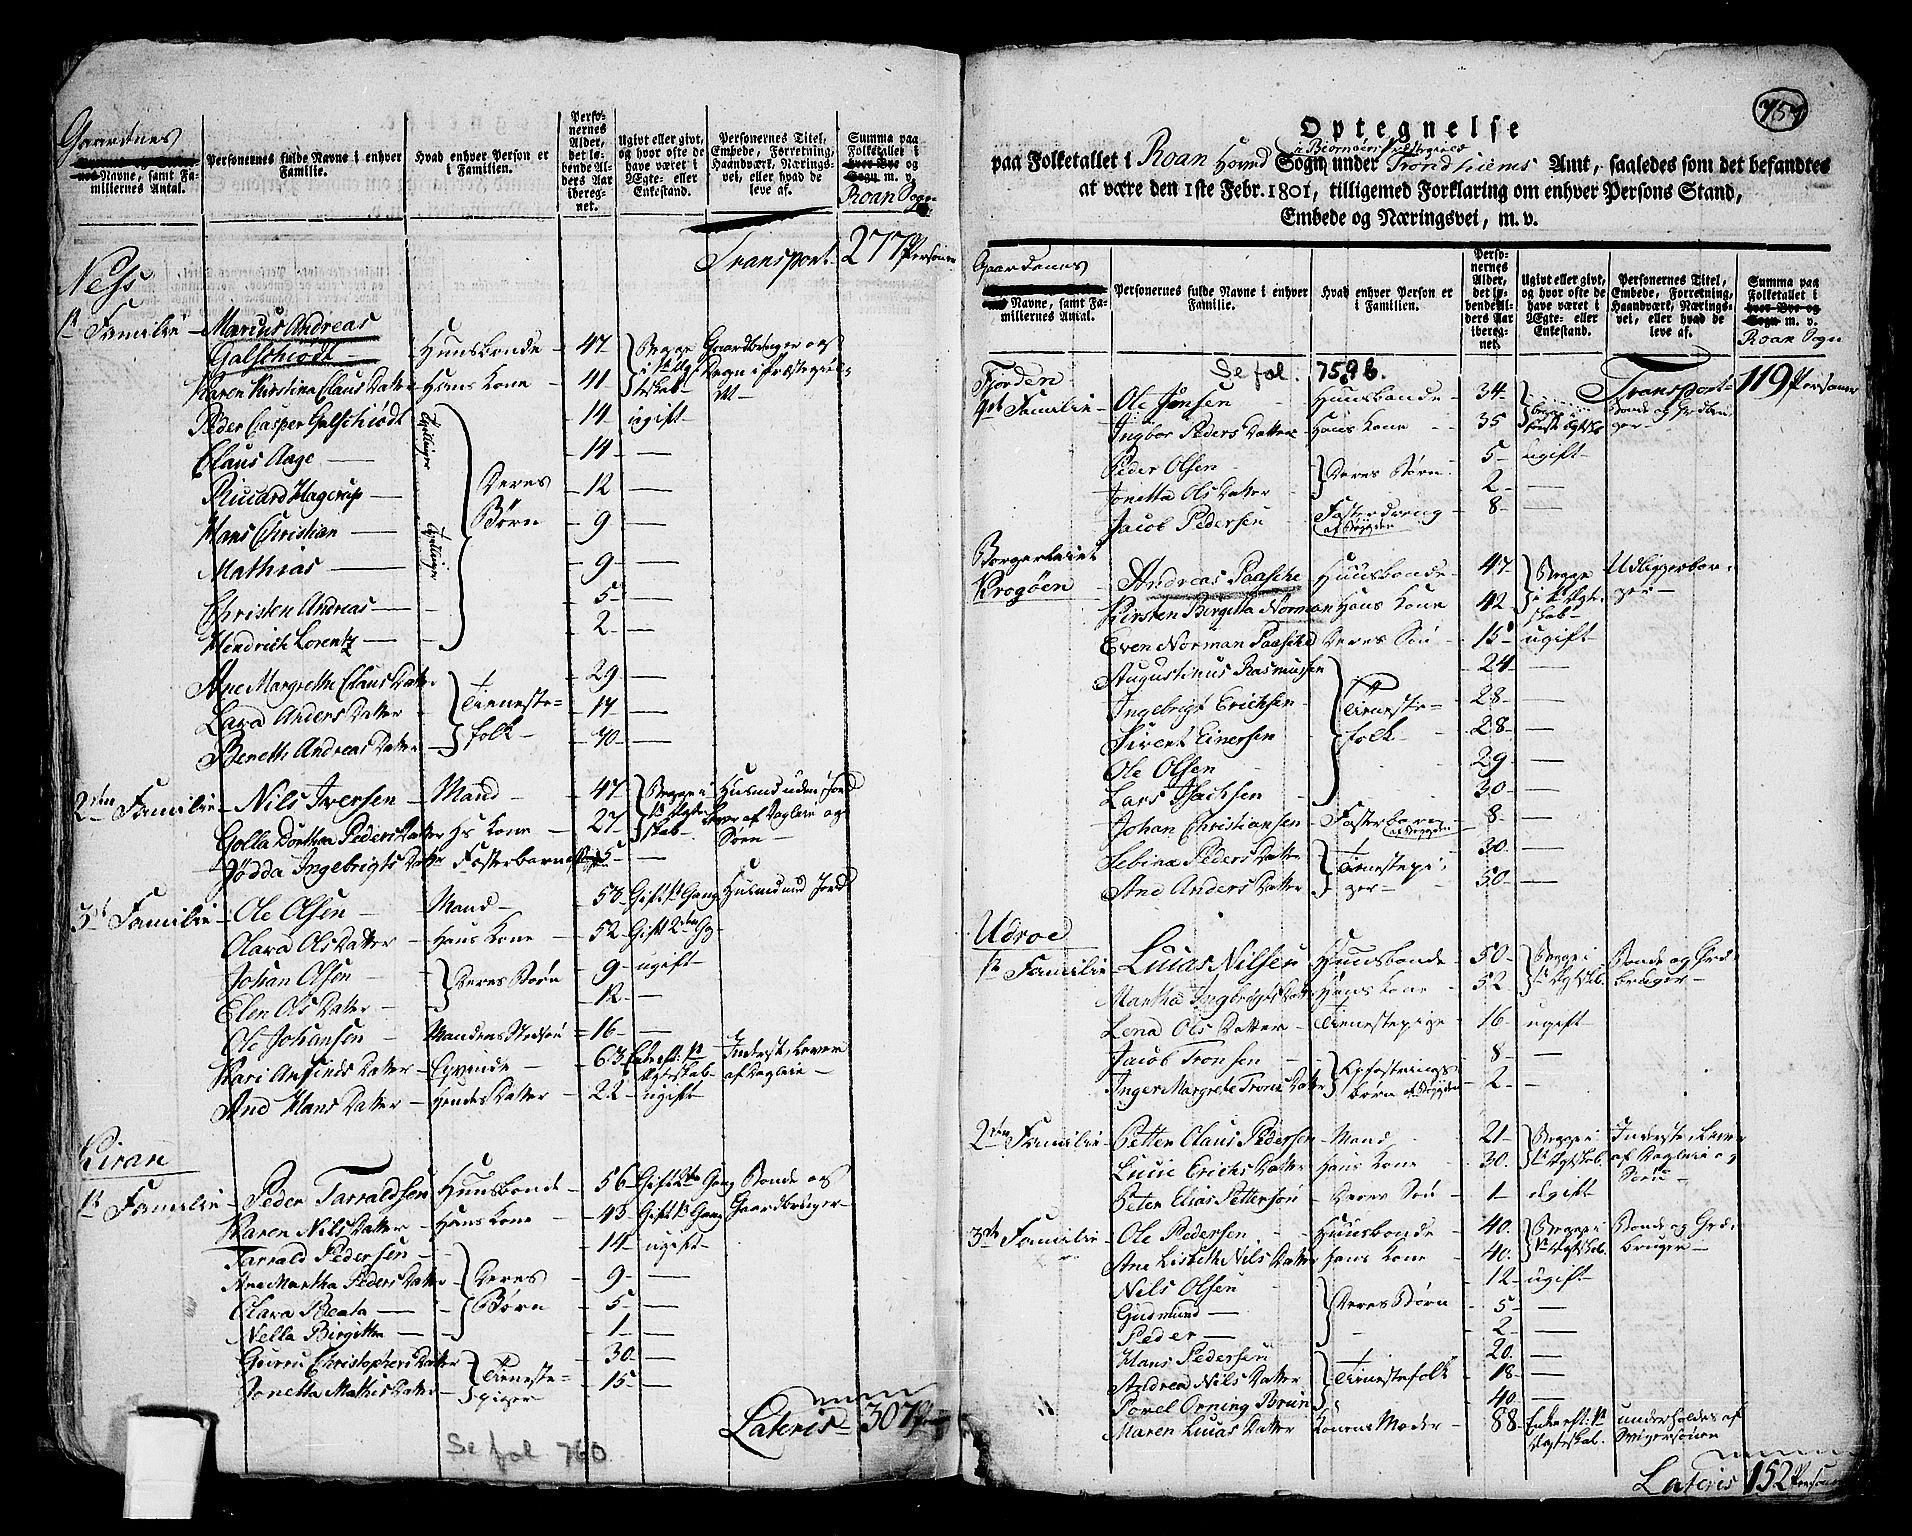 Gaardnes
Navne, samt Familliernes Antal.
Personernes fulde Navne i enhver Familie.
Hvad enhver Person er i Familien.
Personernes Alder, det løbende Alders Aar iberegnet.
Ugivt eller givt, og hvor ofte de have været i Ægte- eller Enkestand.
Personernes Titel, Embede, Forretning, Haandværk, Næringsvei, eller hvad de leve af.
Summa paa Folketallet i hver Bye og Sogn m. v.
Roan Sogn
Transport 277 Personer
Ness
1te Familie Marcus Andreas
Galschiødt Huusbonde 47 Begge i 1te Ægteskab Gaardbruger og Degn i Præstegieldet
Karen Kirstina Claus Datter Hans Kone 41
Peder Casper Galschiødt Tvillinger 14 ugift
Claus Aage 14
Riccard Hagerup Deres Børn 12
Hans Christian Tvillinger 9
Mathias 9
Christen Andreas 5
Hendrich Lorentz 2
Ane Margrethe Claus Datter Tieneste- 29
Lara Anders Datter folk 17
Bereth Andreas Datter 40
2den Familie Nils Iversen Mand 47 Begge i 1te Ægteskab Husmd uden Jord
Golla Dorthea Peders Datter Hs Kone 27 Lever af Dagleie og Søen
Jødda Ingebrigts Datter Fosterbarn 5
3de Familie Ole Olsen Mand 53 Gift 1te Gang Husmd md Jord
Olava Ols Datter Hans Kone 52 Gift 2den Gg
Johan Olsen Deres Børn 9 ugift
Elen Ols Datter 12
Ole Johansen Mandens Stedsøn 16
Kari Arfinds Datter Qvinde 63 Enkest: 1te Ægteskab Inderst, Lever af Dagleie
Ane Hans Datter hendes Datter 22 ugift
Kiran
1te Familie Peder Tarraldsen Huusbonde 56 Gift 2de Gang Bonde og
Karen Nils Datter Hans Kone 43 Gift 1te Gang Gaardbruger
Tarrald Pedersen 14 ugift
Ane Martha Peders Datter Deres 9
Clara Beata Børn 5
Nella Birgitta 1
Guruu Christophers Datter Tieneste- 30
Jonetta Mathis Datter piger 15
Lateris 307 Pers
Se fol 760.
757
Optegnelse
paa Folketallet i Roan Hoved Sogn i Biørnøers Præstegield under Trondhiems Amt, saaledes som det befandtes
at være den 1ste Febr. 1801, tilligemed Forklaring om enhver Persons Stand,
Embede og Næringsvei, m. v.
Gaardenes
Navne, samt Familliernes Antal.
Personernes fulde Navne i enhver Familie.
Hvad enhver Person er i Familien.
Personernes Alder, det løbende Alders Aar iberegnet.
Ugivt eller givt, og hvor ofte de have været i Ægte- eller Enkestand.
Personernes Titel, Embede, Forretning, Haandværk, Næringsvei, eller hvad de leve af.
Summa paa Folketallet i hver Bye og Sogn m. v.
Roan Sogn
Se fol. 759 b.
Transport 119 Personer
Fjorden
4de Familie Ole Jensen Huusbonde 34 begge i første Ægteskab Bonde og Grdbruger
Ingbor Peders Datter Hans Kone 35
Peder Olsen Deres Børn 5 ugift
Jonetta Ols Datter 2
Jacob Pedersen Fosterdreng af Bøyden 8
Borgerleiet
Krogøen Andreas Paasche Huusbonde 47 Begge i 1te Ægteskab Udliggerborger
Kirsten Birgitta Norman Hans Kone 42
Even Norman Paasche Deres Søn 15 ugift
Augustinus Rasmussen 24
Ingebrigt Erichsen Tieneste- 28
Sivert Einersen folk 28
Ole Olsen 29
Lars Isachsen 30
Johan Christiansen Fosterbarn af Bøyden 8
Sebina Peders Datter Tienestepi- 30
Ane Anders Datter ger 50
Udroe
1te Familie Lucas Nilsen Huusbonde 50 Begge i 1te Ægtskb. Bonde og Grdbruger
Martha Ingebrigts Datter Hans Kone 52
Lena Ols Datter Tienestepige 16 ugift
Jacob Tronsen Opfostrings- 8
Inger Margrete Trons Datter børn af Bøyden 2
2den Familie Petter Olaus Pedersen Mand 21 Begge i 1te Ægtskab. Inderste, Lever af Dagleie og Søen
Lucie Erichs Datter Hans Kone 30
Peter Elias Pettersen Deres Søn 1 ugift
3de Familie Ole Pedersen Huusbonde 40 Begge i 1te Ægtskab. Bonde og Grdbruger
Ane Lisbeth Nils Datter Hans Kone 40
Nils Olsen 12 ugift
Gudmund Deres Børn 5
Peder 2
Hans Pedersen 20
Andrea Nils Datter Tienestefolk 18
Povel Orning Bruun 40
Maren Lucas Datter Konens Moder 88 Enkest: 1te Ægteskab. underholdes af Svigersønen
Lateris 152 Personer